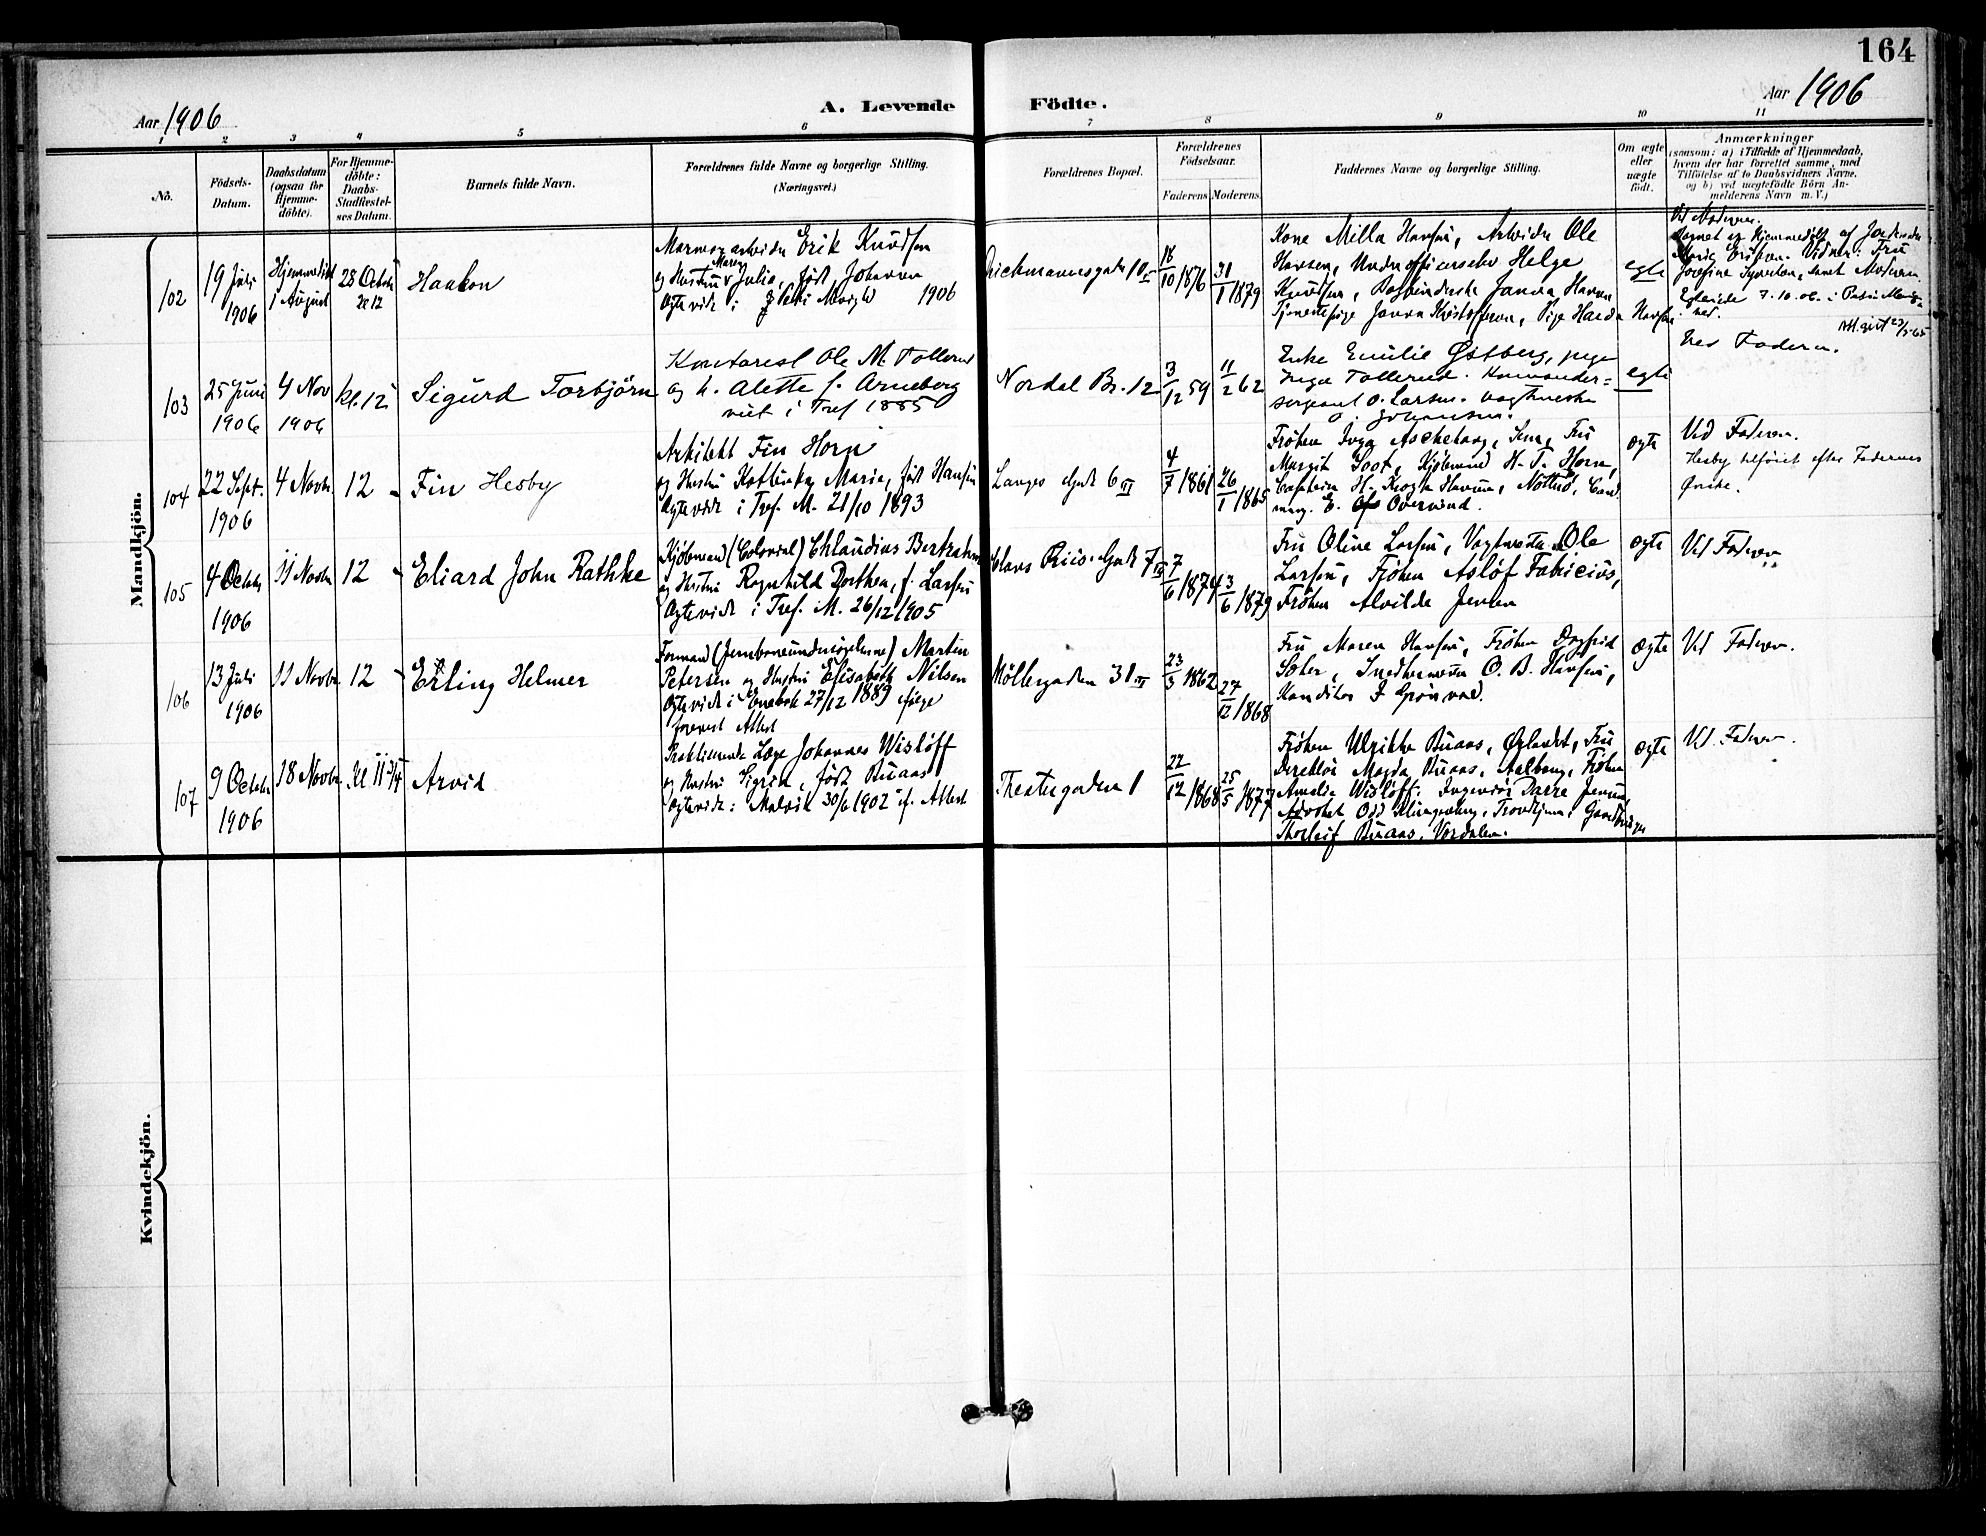 164
Aar 1906
A. Levende Födte.
Aar 1906
1 2 3 4 5 6 7 8 9 10 11
No.
Födsels-
Datum.
Daabsdatum
(ogsaa for
Hjemme-
döbte).
For Hjemme-
döbte:
Daabs-
Stadfæstel-
ses Datum.
Barnets fulde Navn.
Forældrenes fulde Navne og borgerlige Stilling.
(Næringsvei.)
Forældrenes Bopæl.
Forældrenes
Födselsaar.
Faderens Moderens
Faddernes Navne og borgerlige Stilling.
Om ægte
eller
uægte
födt.
Anmærkninger
(saasom: a) i Tilfælde af Hjemmedaab,
hvem der har forrettet samme, med
Tilföielse af to Daabsvidners Navne,
og b) ved uægtefödte Börn An-
melderens Navn m. V.)
Mandkjön.
102
19 Juli
1906
Hjemmedöbt
1 August
28 Octob
Kl 12
Haakon
Marmorarbeider Erik Knudsen
og Hustru Maren Julie, født Johansen
Ægteviede i Petri Menighed 1906
10
18/10 1876
31/1 1879
Kone Milla Hansen, Arbeider Ole
Hansen, Underofficerselev Helge
Knudsen, Bogbinderske Janna Hansen
Tjenestepige Janna Kristoffersen, Pige Harda Hansen
egte
Ved Moderen.
Barnet er Hjemmedöbt af Jordemoder
Marie Eriksen. Vidner: Fru
Josefine Syvertsen, samt Moderen.
Egteviede 7.10.06. i Petri Menig-
hed.
103
25 Juni
1906
4 Nov
1906
kl. 12
Sigurd Torbjörn
Kontorist Ole M. Tollerud
og h. Alette f. Arneberg
viet i Tref 1885
Nordal Br. 12
3/12 59
11/2 62
Enke Emilie Østberg, pige
Inga Tollerud. Kommander=
sergeant O. Larsen. Vagtmester
O. Johansen.
egte
Ved Faderen.
104
22 Sept.
1906
4 Novbr
12
Fin Hesby
Arkitekt Fin Horn
og Hustru Kathinka Maria, født Hansen
Ægteviede i Tref. M. 21/10 1893
Langes Gade 6 III
4/7 1861
26/1 1865
Frøken Inga Aschehoug, Fru
Margit Foot, Kjøbmand H. T. Horn,
H. Krogh Hansen, Nøtterø, Cand
mag. E. Overvind.
ægte
Ved Faderen.
Hesby tilføiet efter Faderens
Ønske.
105
4 Octob
1906
11 Novbr
12
Eliard John Rathke
Kjøbmand (Colonial) Chlaudius Bertrahm
og Hustru Ragnhild Dorthea, f. Larsen
Ægteviede i Tref. M. 26/12 1905
Claus Riis Gade 7
7/6 1874
13/6 1879
Fru Oline Larsen, Vagtmester Ole
Larsen, Frøken Asløf Fabricius,
Frøken Alvilde Jensen
ægte
Ved Faderen
106
13 Juli
1906
11 Novbr
12
Erling Helmer
Formand (Jernbaneundersøgelserne) Martin
Petersen og Hustru Elisabeth Nilsen
Ægteviede i Enebak 27/12 1889 ifølge
forevist Attest
Møllergaden 31 III
23/3 1862
27/12 1868
Fru Maren Hansen, Frøken Dagfrid
Sæter, Snedkermester O. B. Hansen,
Konditor J Grønvold.
ægte
Ved Faderen.
107
9 Octob
1906
18 Novbr
Kl 11 3/4
Arvid
Praktiserende Læge Johannes Wisløff
og Hustru Sigrid, født Buaas
Ægteviede: Malvik 30/6 1902 if. Attest
Theatergaden 1
22/12 1868
25/5 1877
Frøken Ulrikke Buaas, Ørlandet, Fru
Direktør Magda Buaas, Aalborg, Frøken
Amalie Wisløff. Ingeniør Darre Jensen,
Advokat Odd Klingenberg, Trondhjem, Gaardbruger
Thorleif Buaas, Verdalen.
ægte
Ved Faderen.
Kvindekjön.